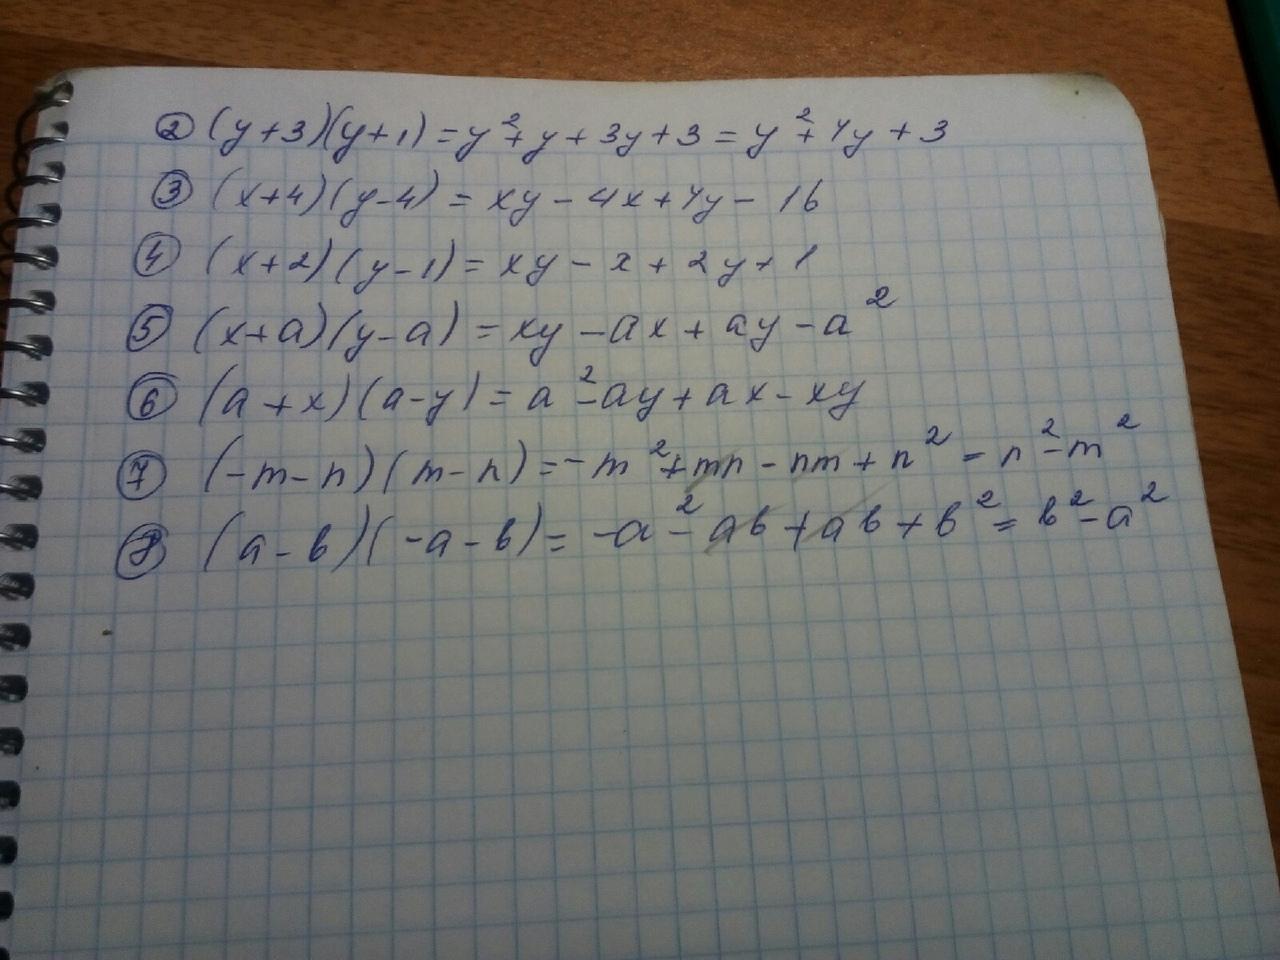 ② (y+3)(y+1)=y²+y+3y+3=y²+4y+3
③ (x+4)(y-4)=xy-4x+4y-16
④ (x+2)(y-1)=xy-x+2y+1
⑤ (x+a)(y-a)=xy-ax+ay-a²
⑥ (a+x)(a-y)=a²-ay+ax-xy
⑦ (-m-n)(m-n)=-m²+mn-nm+n²=n²-m²
⑧ (a-b)(-a-b)=-a²-ab+ab+b²=b²-a²